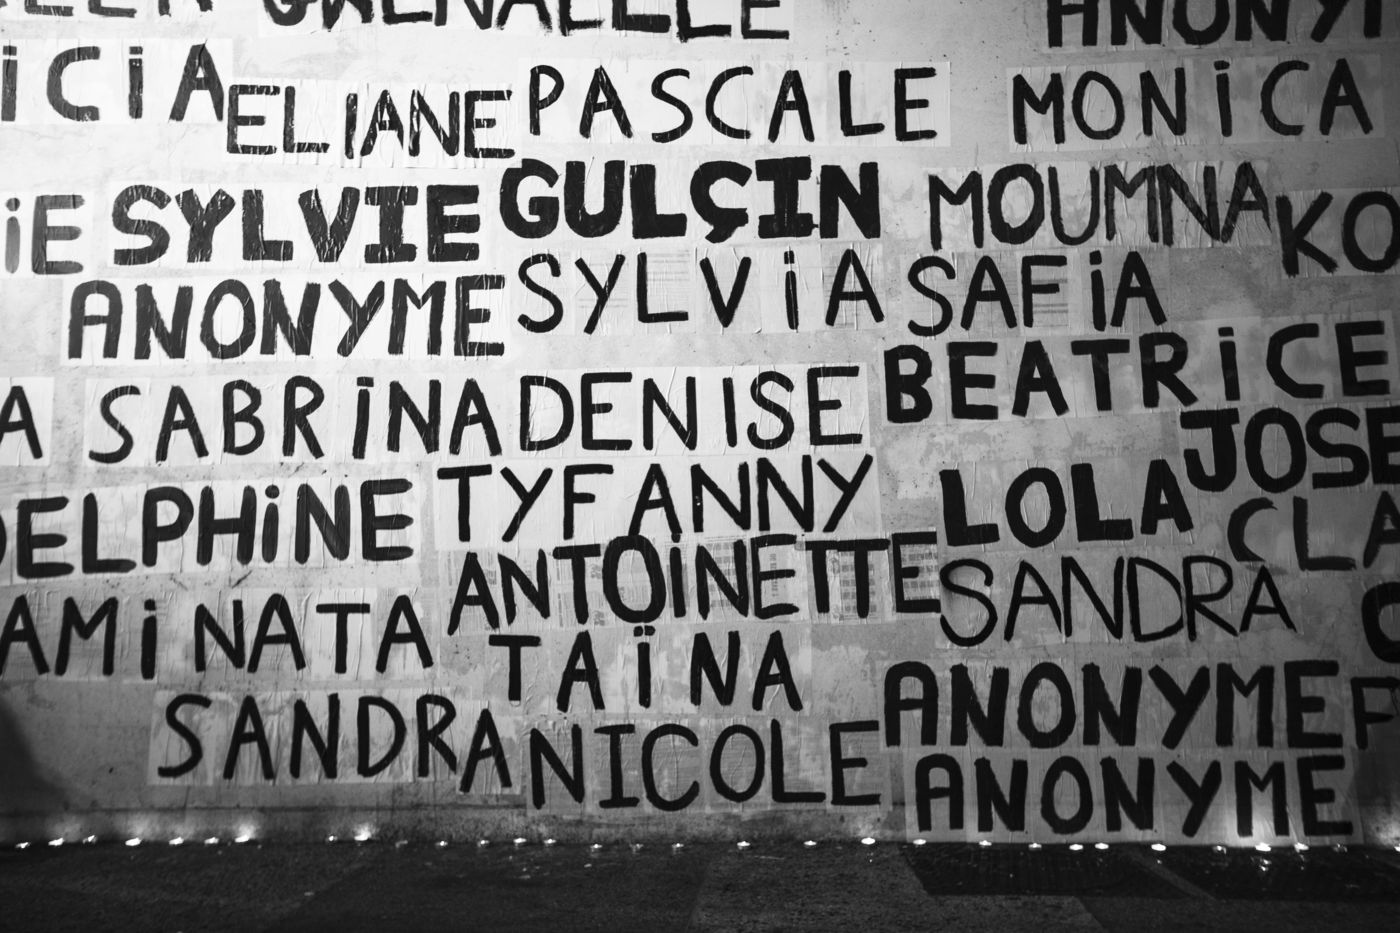 GWENAELLE ANONY
ICIA ELIANE PASCALE MONICA
IE SYLVIE GULÇIN MOUMNA KO
ANONYME SYLVIA SAFIA
BEATRICE
A SABRINA DENISE JOSE
DELPHINE TYFANNY LOLA CLA
ANTOINETTE SANDRA
AMINATA TAÏNA
SANDRA NICOLE ANONYME P
ANONYME